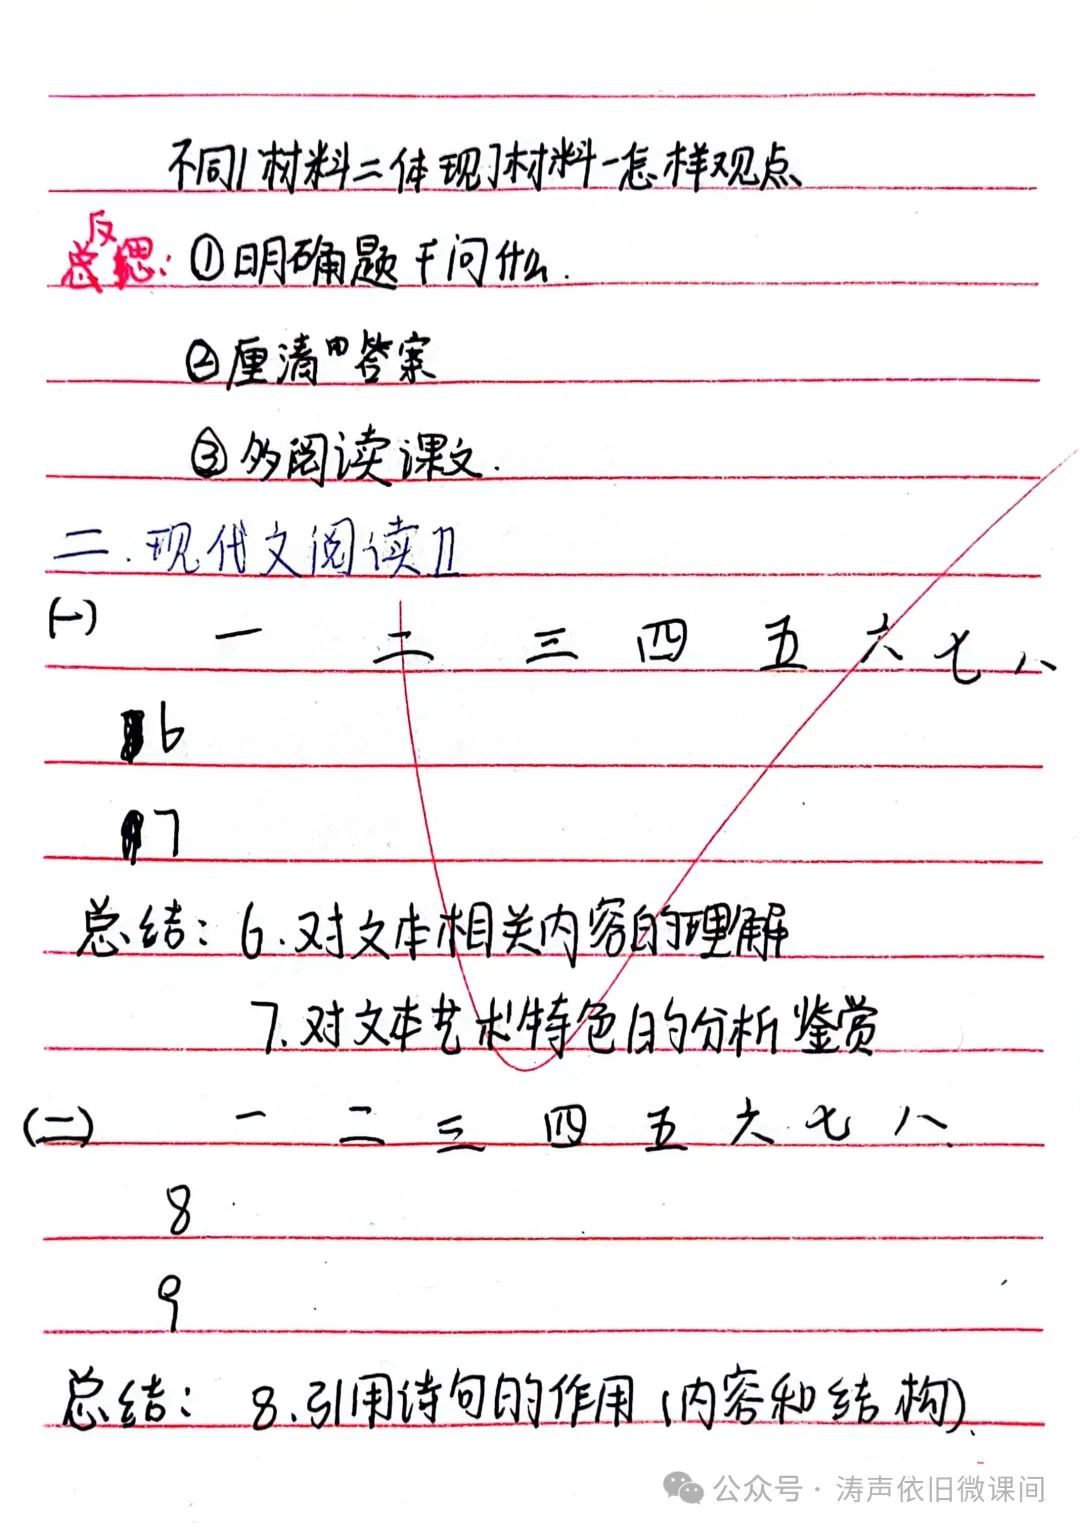 不同材料二体现了材料一怎样观点
反思: ①明确题干问什么.
②厘清答案
③多阅读课文.
二.现代文阅读Ⅱ
(一) 一 二 三 四 五 六 七 八
6
7
总结: 6.对文本相关内容的理解
7.对文本艺术特色的分析鉴赏
(二) 一 二 三 四 五 六 七 八
8
9
总结: 8.引用诗句的作用(内容和结构).
公众号·涛声依旧微课间